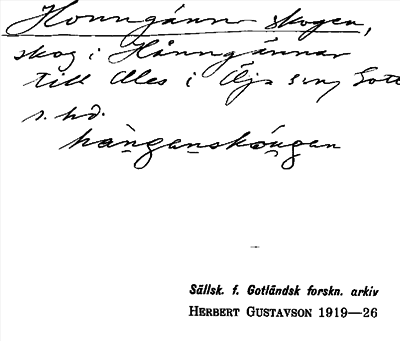 Honngänn skogen,
skog i Hånngännar
till Ales i Öja sn, Gotl
s. hd.
hangenskougen
Sällsk. f. Gotländsk forskn. arkiv
HERBERT GUSTAVSON 1919—26